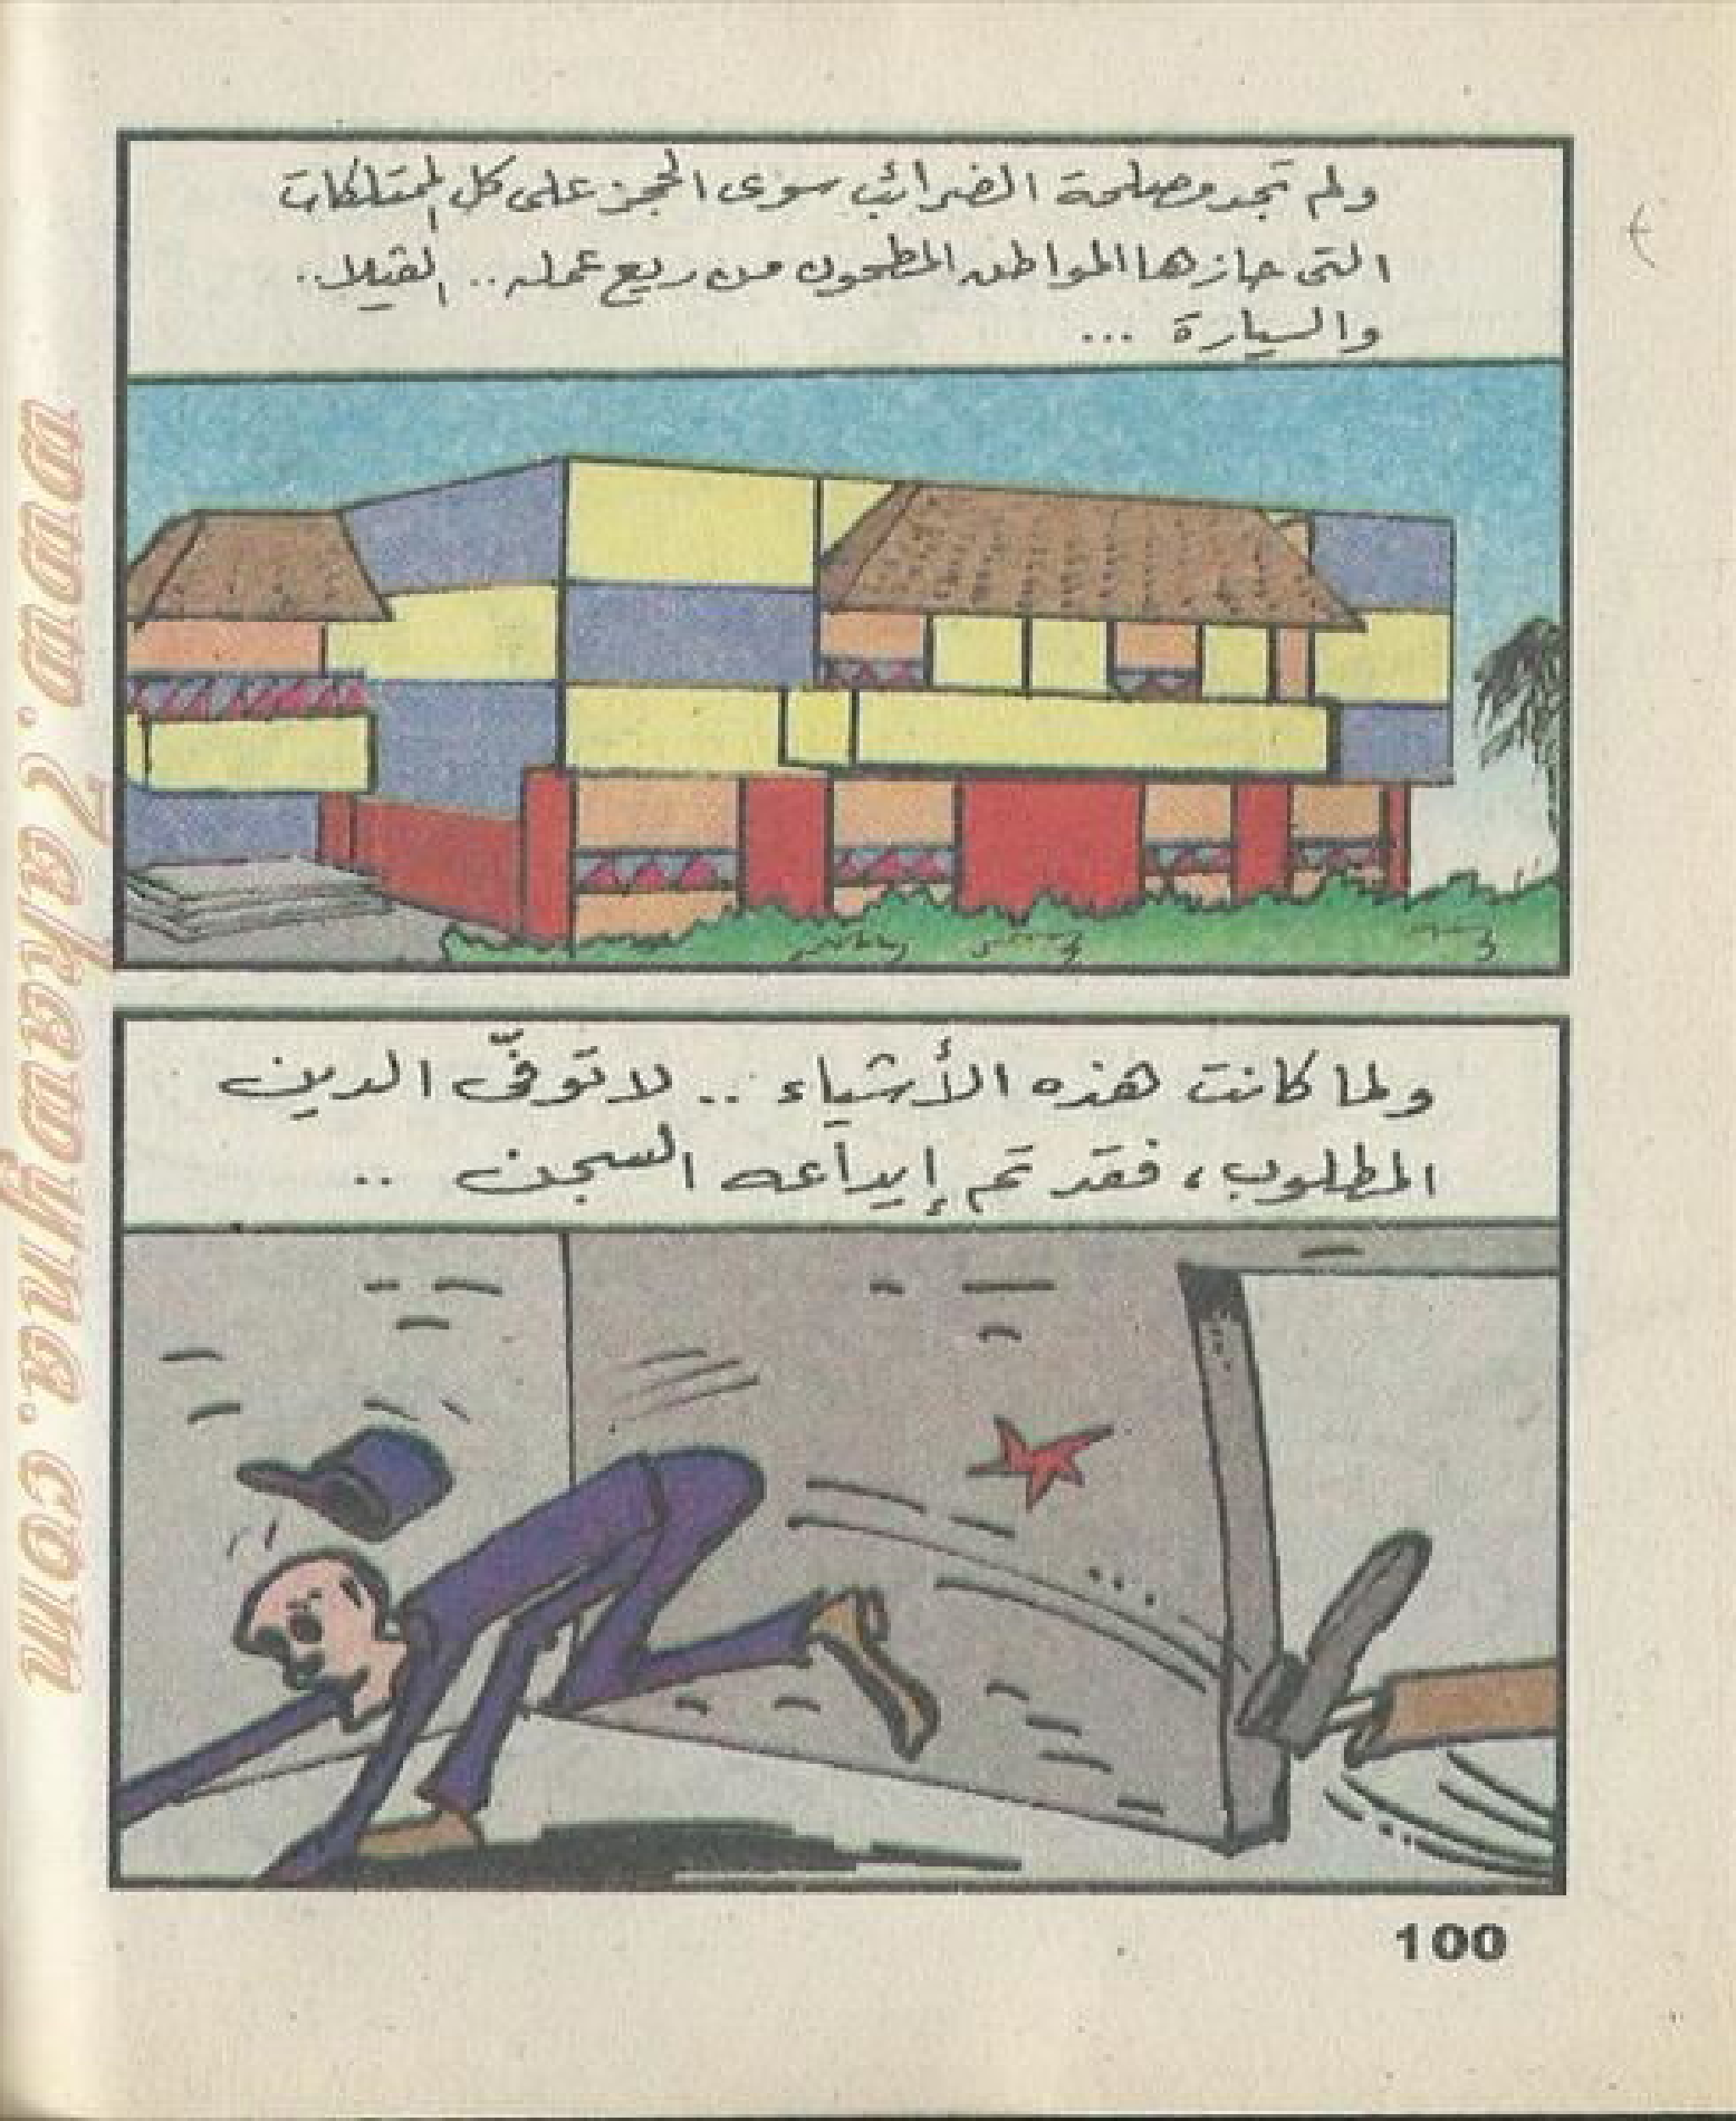 ولم تجد مصلحة الضرائب سوى الحجز على كل الممتلكات
التى حازها المواطن المطحون من ريع عمله.. الفيلا..
والسيارة ...
ولما كانت هذه الأشياء .. لا توفّى الدين
المطلوب، فقد تم إيداعه السجن ..
100
www.7akawyna.com